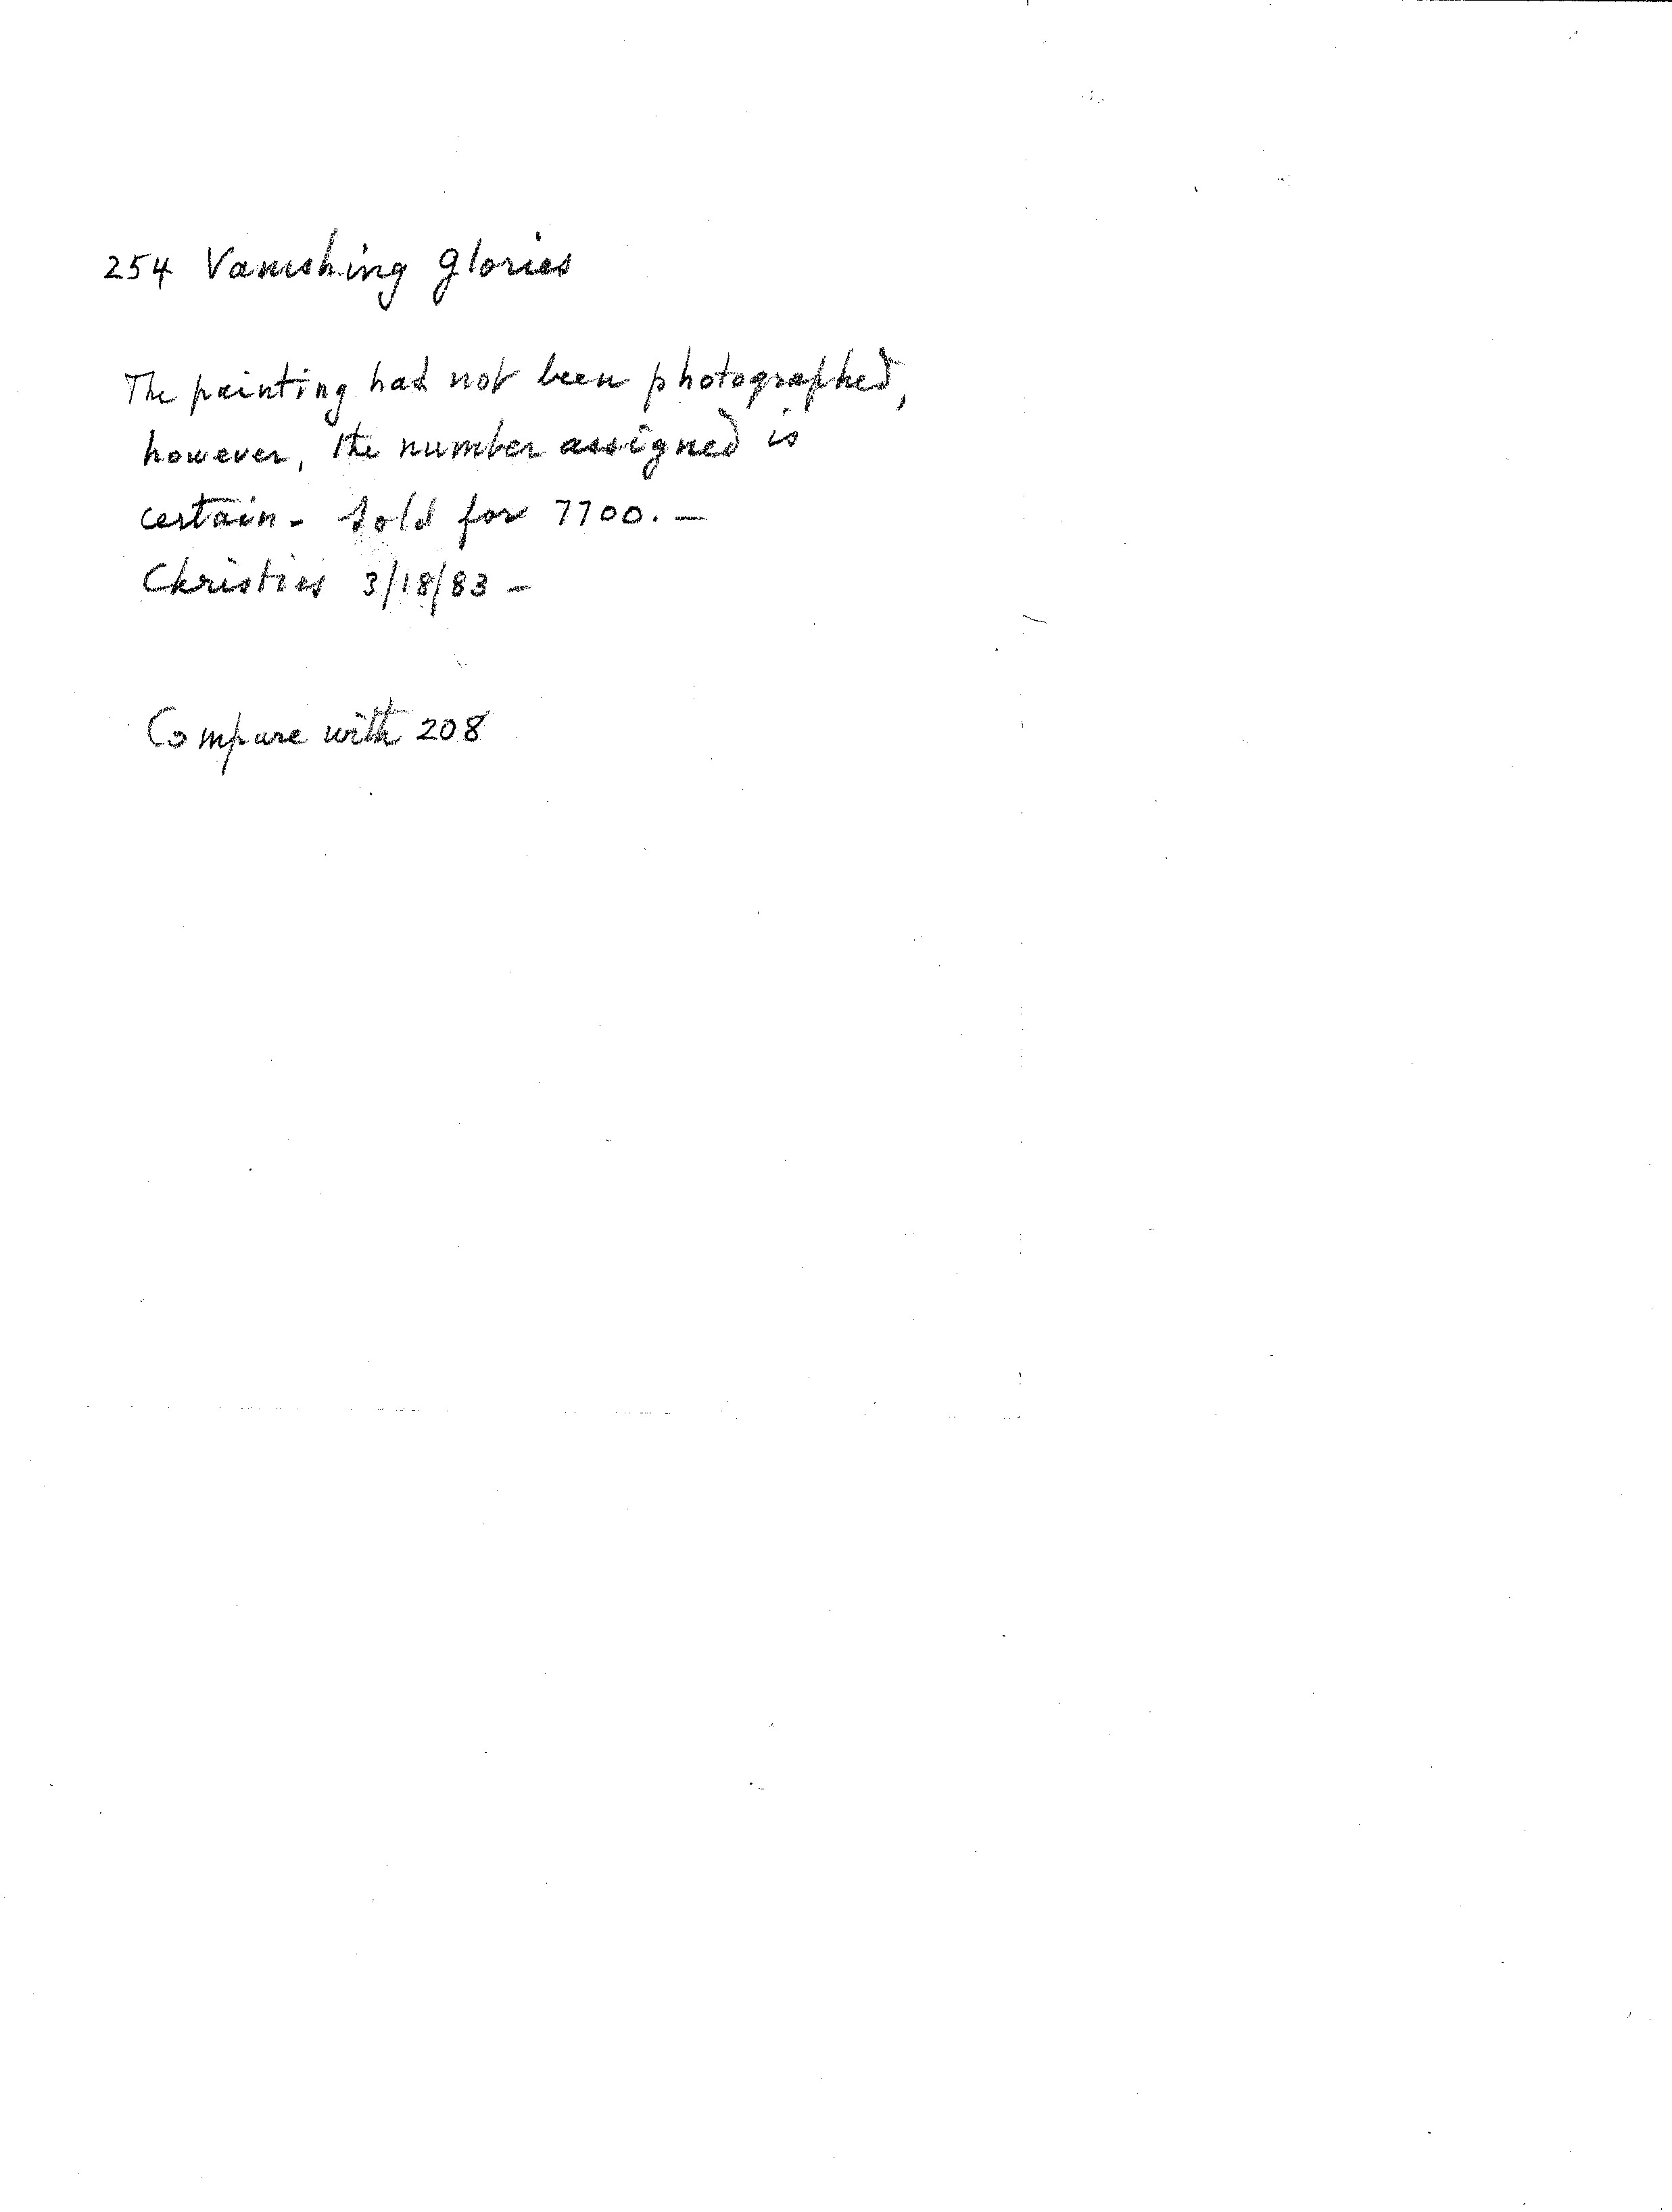 254 Vanishing Glories
The painting had not been photographed,
however, the number assigned is
certain - Sold for 7700. —
Christies 3/18/83 -
Compare with 208